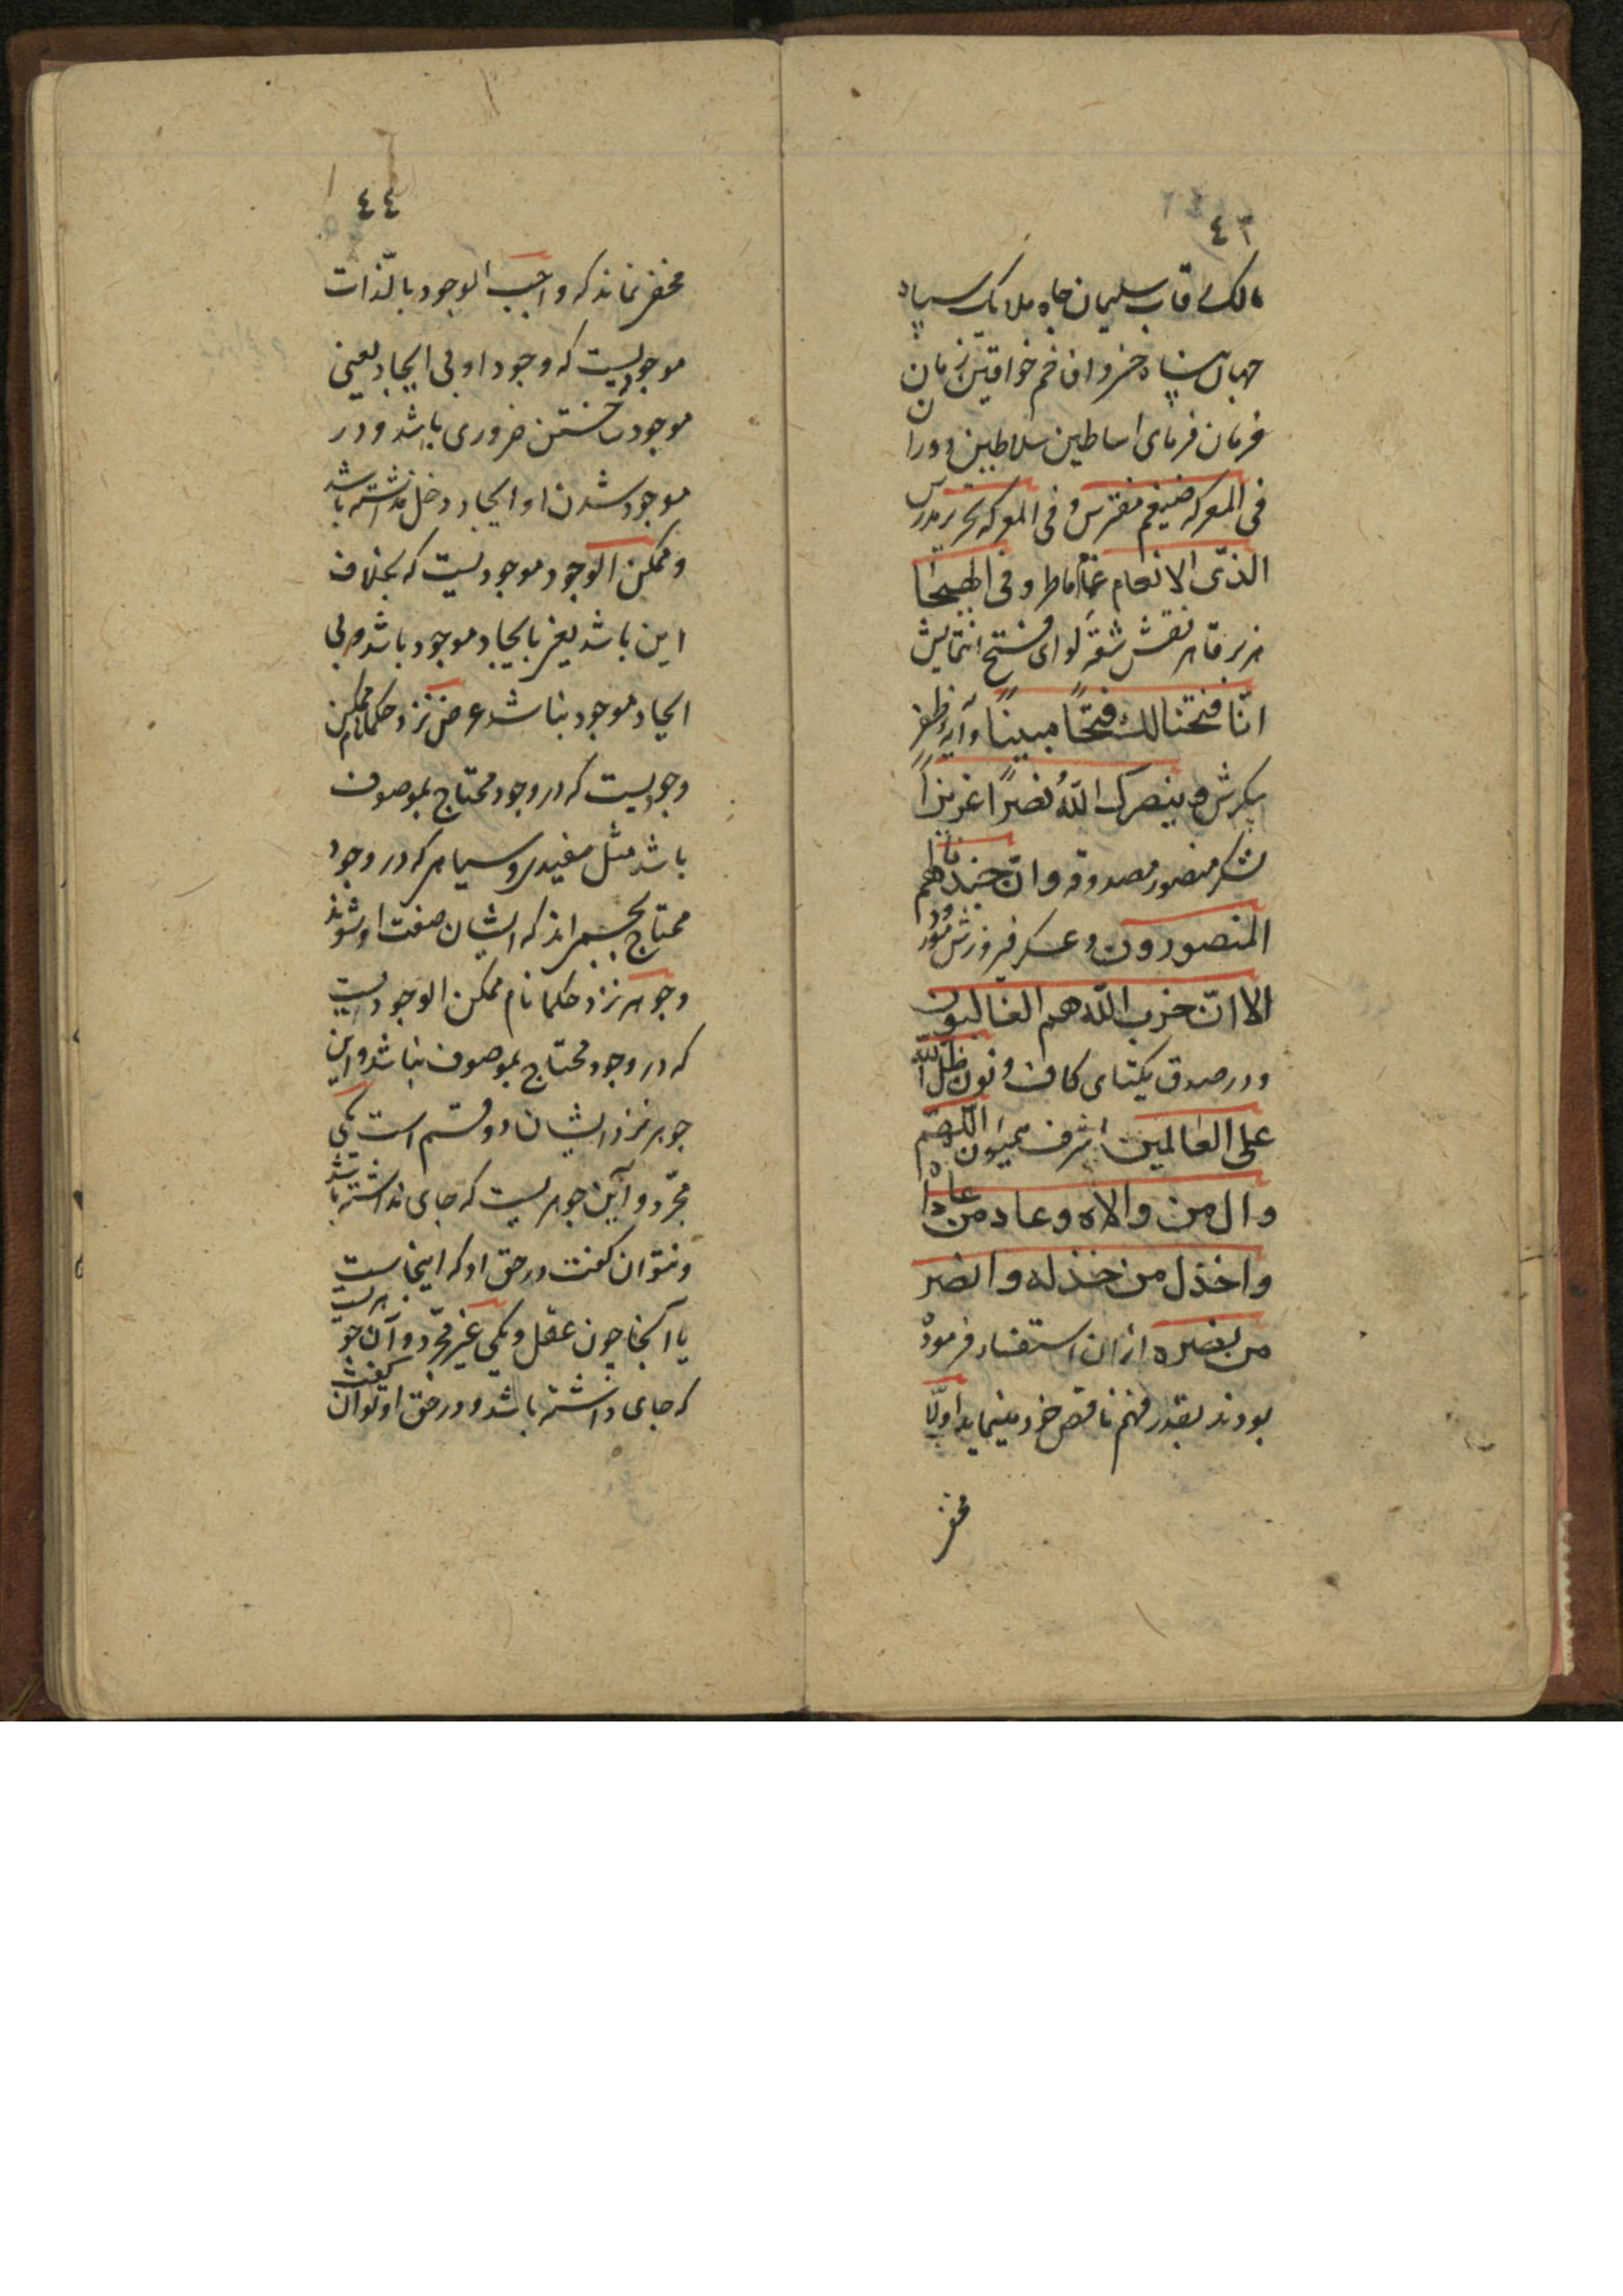 ٤٣
مالک رقاب سلیمان جاه ملایک سپاه
جهان پناه خسرو افاخم خواقین زمان
فرمان فرمای اساطین سلاطین دوران
فی المعرکه ضیغم مفترس و فی المعرکه نحریر مدرس
الذی الانعام غمام ماطر و فی الهیجا
هزبر قاهر نقش شقه لوای فتح انتمایش
انّا فتحنا لك فتحًا مبینًا و آیه ظفر
پیکرش و ینصرک اللّه نصرًا عزیزًا
لشکر منصور مصدوقه و انّ جندنا لهم
المنصورون و عسکر فیروزش مورد
الا انّ حزب اللّه هم الغالبون
و در صدق یکتای کاف و نون ظلّ اللّه
علی العالمین اشرف همیون اللّهمّ
وال من والاه و عاد من عاداه
و اخذل من خذله و انصر
من نصره از ان استفسار فرموده
بودند بقدر فهم ناقص خود مینماید اولّا
مخفی
٤٤
مخفی نماند که واجب الوجود بالذّات
موجودیست که وجود او بی ایجاد یعنی
موجود ساختن ضروری باشد و در
موجود شدن او ایجاد دخل نداشته باشد
و ممکن الوجود موجودیست که بخلاف
این باشد یعنی بایجاد موجود باشد و بی
ایجاد موجود نباشد عرض نزد حکما نام ممکن
وجودیست که در وجود محتاج بموصوف
باشد مثل سفیدی و سیاهی که در وجود
محتاج بجسم اند که ایشان صفت او شوند
و جوهر نزد حکما نام ممکن الوجودیست
که در وجود محتاج بموصوف نباشد و این
جوهر نزد ایشان دو قسم است یکی
مجرّد و آن جوهریست که جای نداشته باشد
و نتوان گفت در حق او که اینجاست
یا آنجا چون عقل و یکی غیر مجرّد و آن جوهریست
که جای داشته باشد و در حق او توان گفت